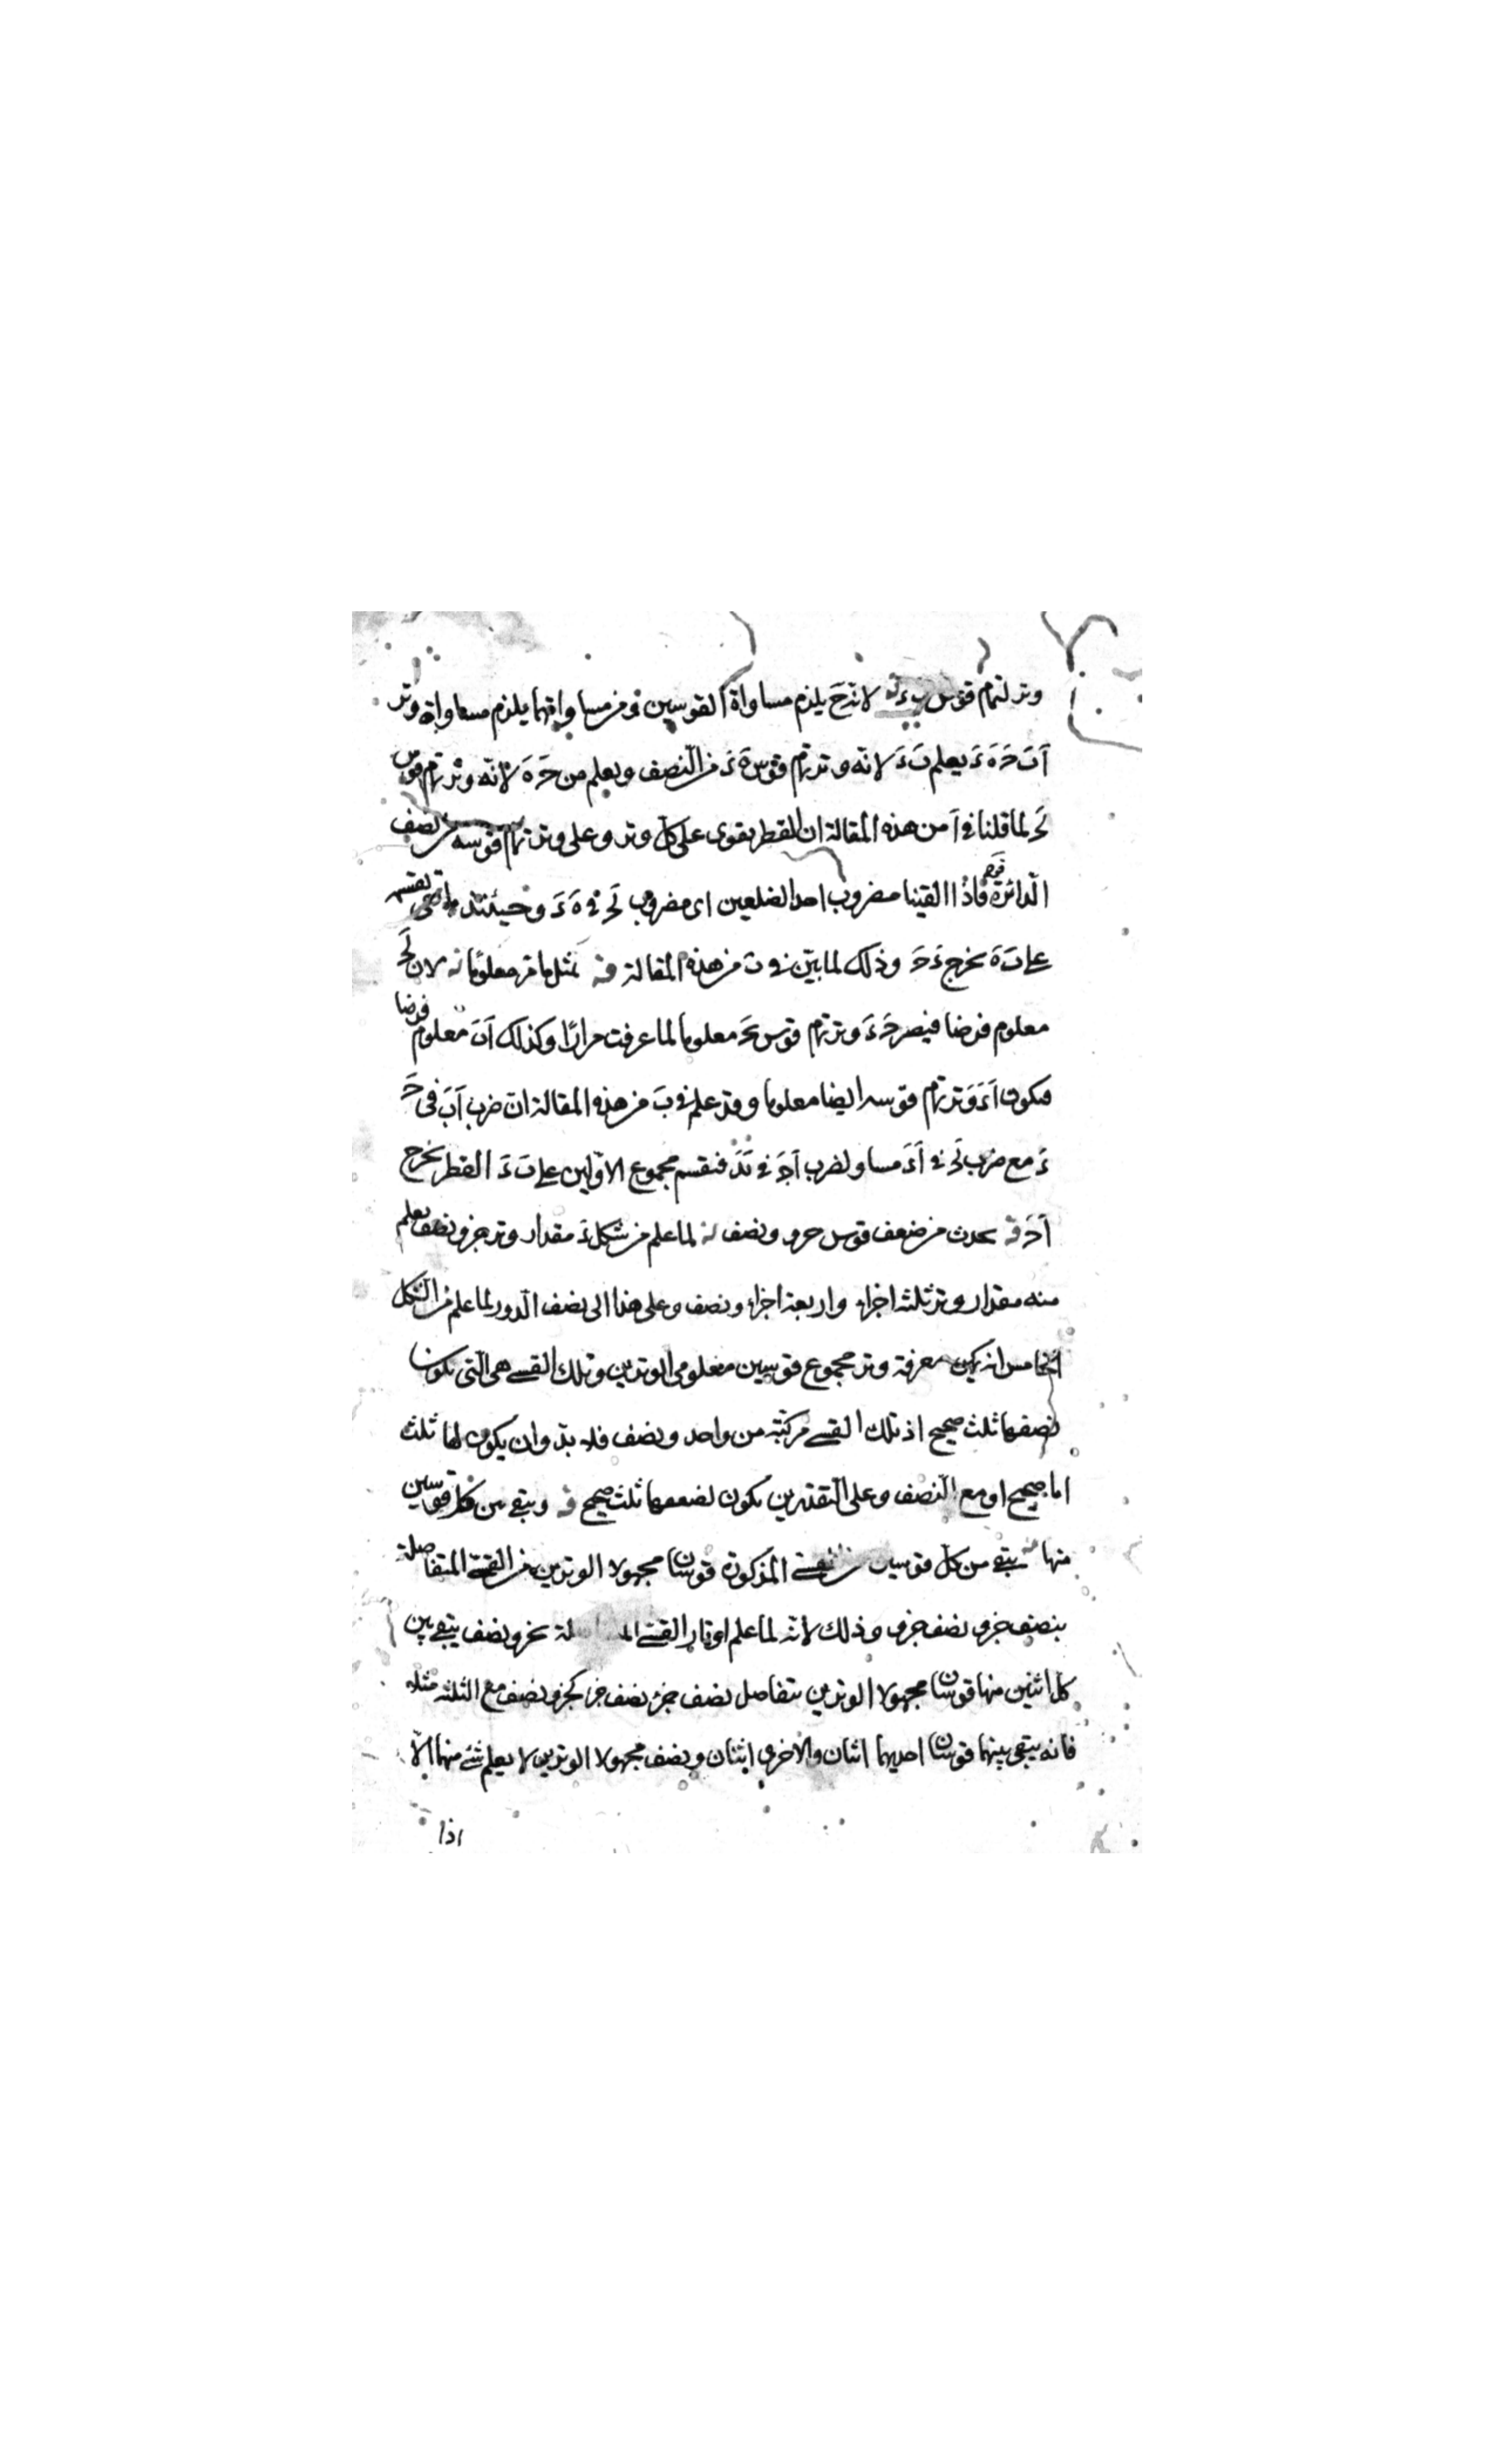 وتر لتمام قوس ب ء لانه ح يلزم مساواة القوسين ومن مساواتهما يلزم مساواة وتر
آب حَ هَ ءَ يعلم بَ ءَ لانه وتر تمام قوس هَ ءَ من النصف ويعلم من حَ هَ لانه وتر تمام قوس
بَحَ لما قلنا فى آ من هذه المقالة ان القطر يقوى على كل وتر وعلى وتر تمام قوسه من نصف
الدائرة فاذا القينا مضروب احد الضلعين اى مضروب بَحَ فى هَ ءَ وحينئذ ما بقى يقسم
على بَ هَ يخرج ءَ حَ وذلك لما بين فى بَ من هذه المقالة قه بمثل ما مر معلوما نه لان بَحَ
معلوم فرضا فيصير حَ ءَ وتر تمام قوس بَحَ معلوما لما عرفت مرارا وكذلك آبَ معلوم فرضا
فيكون آءَ وتر تمام قوسه ايضا معلوما وقد علم فى بَ من هذه المقالة ان ضرب آبَ فى حَ
ءَ مع ضرب بَحَ فى آءَ مساو لضرب آحَ فى بَءَ فنقسم مجموع الاولين على بَ ءَ القطر يخرج
آحَ قه يحدث من ضعف قوس جزء ونصف نه لما علم من شكل ءَ مقدار وتر جزو ونصف يعلم
منه مقدار وتر ثلثه اجزاء واربعة اجزاء ونصف وعلى هذا الى نصف الدور لما علم من الشكل
الخامس انه يمكن معرفة وتر مجموع قوسين معلومى الوترين وتلك القسى هى التى يكون
نصفها ثلث صحيح اذ تلك القسى مركبة من واحد ونصف فلا بد وان يكون لها ثلث
اما صحيح او مع النصف وعلى التقديرين يكون لضعفها ثلث صحيح قه ويبقى بين كل قوسين
منها نه يبقى من كل قوسين من القسى المذكورة قوسان مجهولا الوترين من القسى المتفاضلة
بنصف جزو نصف جزو وذلك لانه لما علم اوتار القسى بجزو ونصف يبقى بين
كل اثنين منها قوسان مجهولا الوترين يتفاضل نصف جزء نصف جزء كجزو ونصف مع الثلثه مثلا
فانه يبقى بينهما قوسان احديهما اثنان والاخرى اثنان ونصف مجهولا الوترين لا يعلم شئ منهما الا
اذا